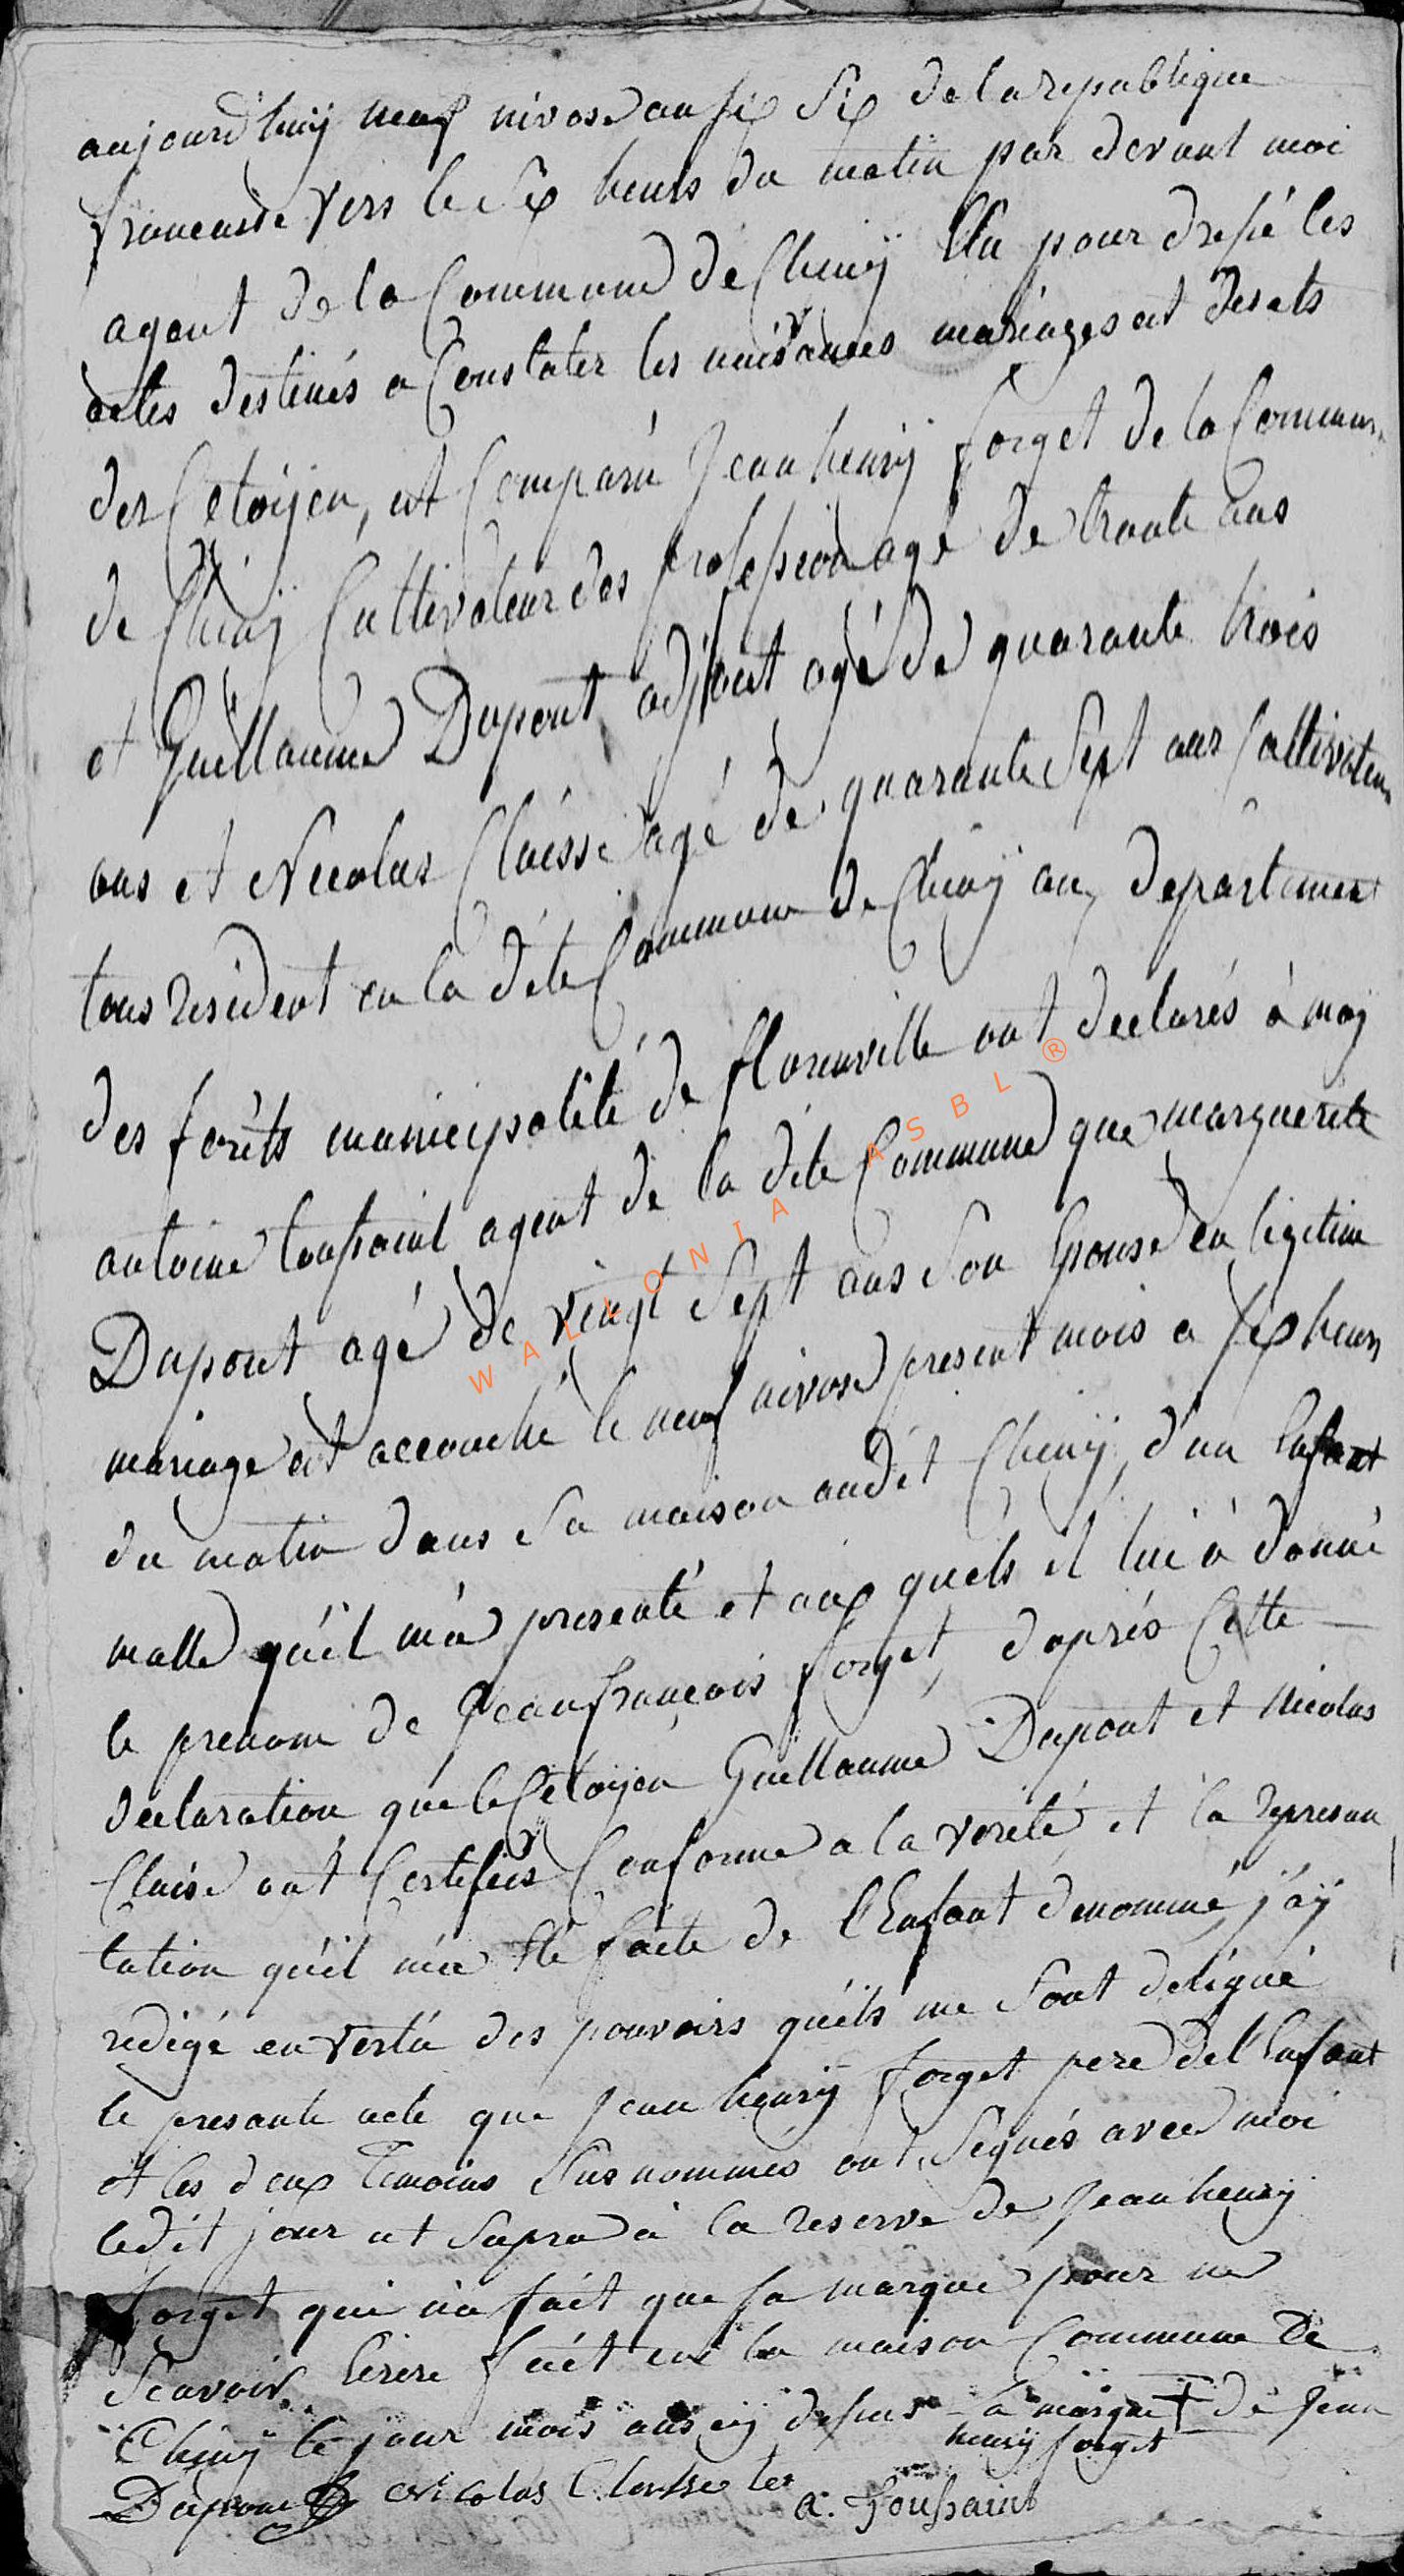 aujourdhuÿ neuf nivose an six Six De la republique
francaisse vers le Six heurs du matin par devant moi
agent de la Commune de Chinÿ Elu pour dressé les
actes destinés a Constater les naissances mariages et desets
des Citoijen, est Comparu Jean henrÿ forget de la Commune
de Chinÿ Cultivateur des profession agé de trante ans
et Guillaume Dupont adjoint agé de quarante trois
ans et Nicolas Claisse agé de quarante Sept ans Cultivateur
tous resident en la dite Commune de Chinÿ au departement
des forêts municipalité de florenville ont declarés à moÿ
antoine toussaint agent de la dite Commune que marguerite
Dupont agé de vingt Sept ans Son Epouse en legitim
mariage est accouché le neuf nivose present mois a six heurs
du matin dans Sa maison audit Chinÿ, d'un Enfant
malle qu'il m'a presenté et aux quels il lui à donné
le prenom de Jean françois forget, daprés Cette
declaration que le Citoijen Guillaume Dupont et Nicolas
Claise ont Certifiés Conforme a la verité et la represan
tation qu'il m'a Eté faite de l'Enfant denommé, j'aÿ
redigé en vertu des pouvoirs qu'ils me Sont deligué
le presante acte que Jean henrÿ forget pere de l'Enfant
et les deux Temoins Susnommés ont Signés avec moi
ledit jour ut Supra à la reserve de Jean henrÿ
forget qui n'a fait que sa marque pour ne
Scavoir Ecrire fait en la maison Commune De
Chinÿ le jour mois ans eÿ dessus la marque + de Jean
henrÿ forget
Dupont Nicolas Claisse
a. Toussaint
WALLONIA ASBL ®